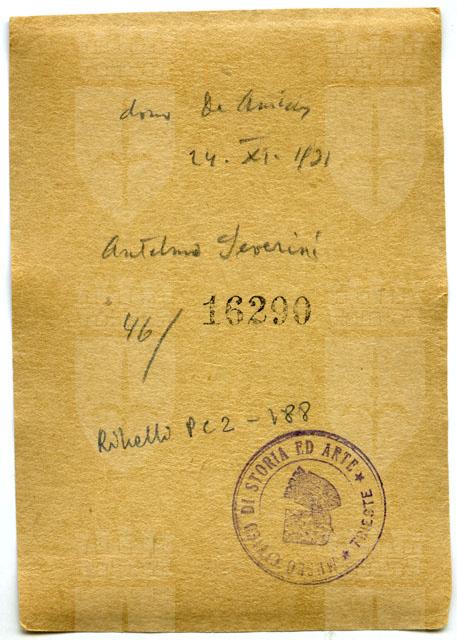 dono De Amicis
24. XI. 1921
Antelmo Severini
46/ 16290
PC2-188
MUSEO CIVICO DI STORIA ED ARTE ★ TRIESTE ★